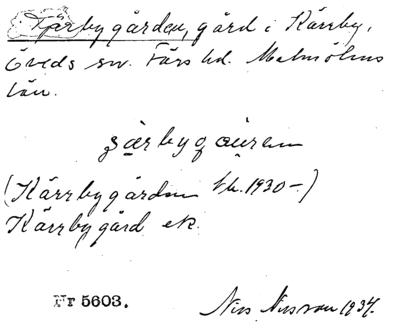 Kärrbygården, gård i Kärrby,
Öveds sn. Färs hd. Malmöhus
län.
(Kärrbygården 1930–)
Kärrbygård ek.
Nr 5603.
Nils Nilsson 1934.